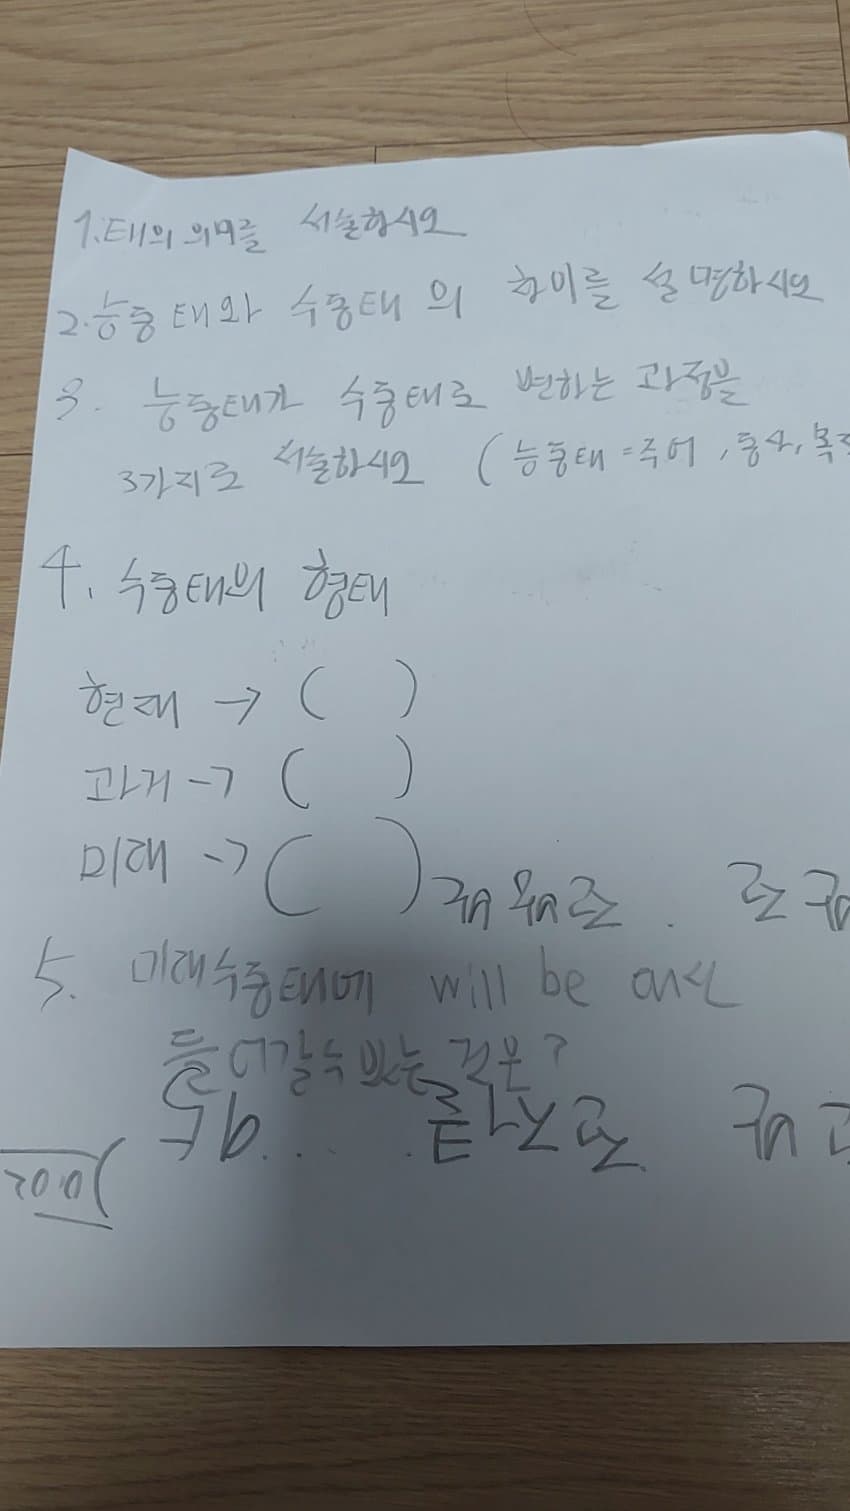 1. 태의 의미를 서술하시오
2. 능동태와 수동태의 차이를 설명하시오
3. 능동태가 수동태로 변하는 과정을
3가지로 서술하시오 (능동태=주어, 동사, 목적
4. 수동태의 형태
현재 → ( )
과거 → ( )
미래 → ( )
5. 미래수동태에 will be 대신
들어갈수 있는 것은?